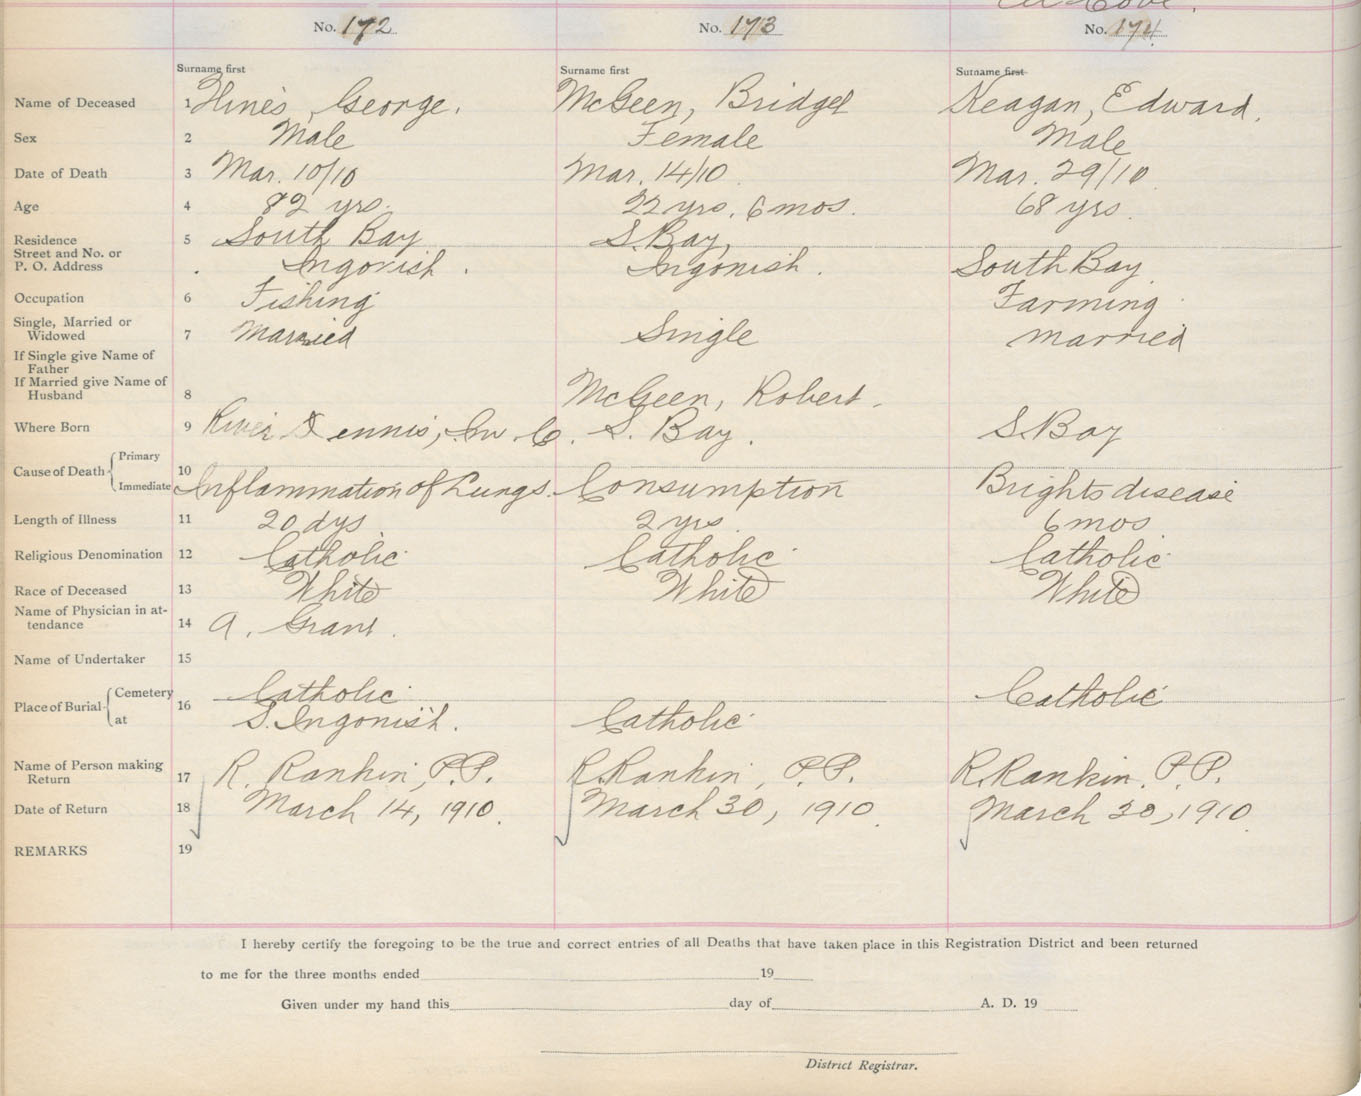 No. 172 No. 173 No. 174
Surname first Surname first Surname first
Name of Deceased 1 Hines, George. McGeen, Bridget Keagan, Edward.
Sex 2 Male Female Male
Date of Death 3 Mar. 10/10 Mar. 14/10 Mar. 29/10
Age 4 82 yrs. 22 yrs. 6 mos. 68 yrs.
Residence 5 South Bay S. Bay,
Street and No. or
P. O. Address Ingonish. Ingonish. South Bay
Occupation 6 Fishing Farming
Single, Married or
Widowed 7 Married Single married
If Single give Name of
Father
If Married give Name of
Husband 8 McGeen, Robert.
Where Born 9 River Dennis, In C. S. Bay. S. Bay
Cause of Death Primary
10
Immediate Inflammation of Lungs. Consumption Brights disease
Length of Illness 11 20 dys. 2 yrs. 6 mos
Religious Denomination 12 Catholic Catholic Catholic
Race of Deceased 13 White White White
Name of Physician in at-
tendance 14 A. Grant.
Name of Undertaker 15
Place of Burial Cemetery 16 Catholic Catholic
at S. Ingonish. Catholic
Name of Person making
Return 17 R. Rankin, P.P. R. Rankin, P.P. R. Rankin, P.P.
Date of Return 18 March 14, 1910. March 30, 1910. March 30, 1910.
REMARKS 19
I hereby certify the foregoing to be the true and correct entries of all Deaths that have taken place in this Registration District and been returned
to me for the three months ended 19
Given under my hand this day of A. D. 19
District Registrar.